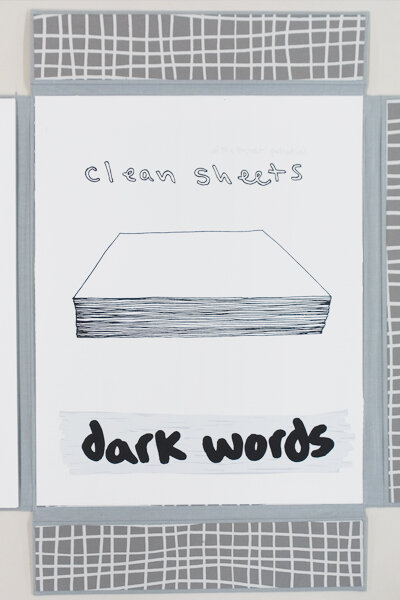 clean sheets
dark words